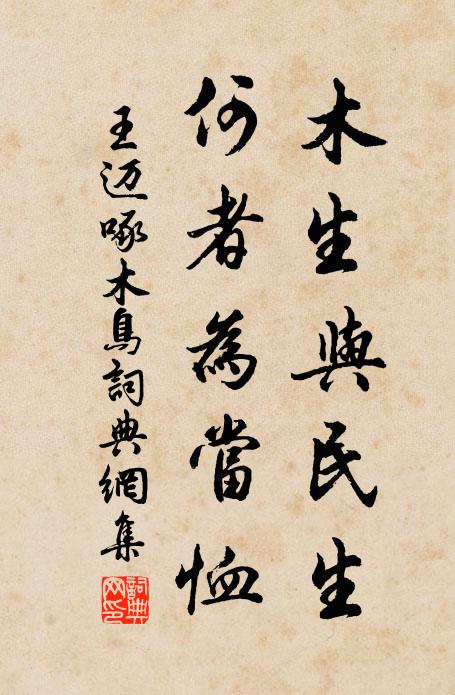 木生與民生
何者為當恤
王迈啄木鳥詞典網集
詞典網印